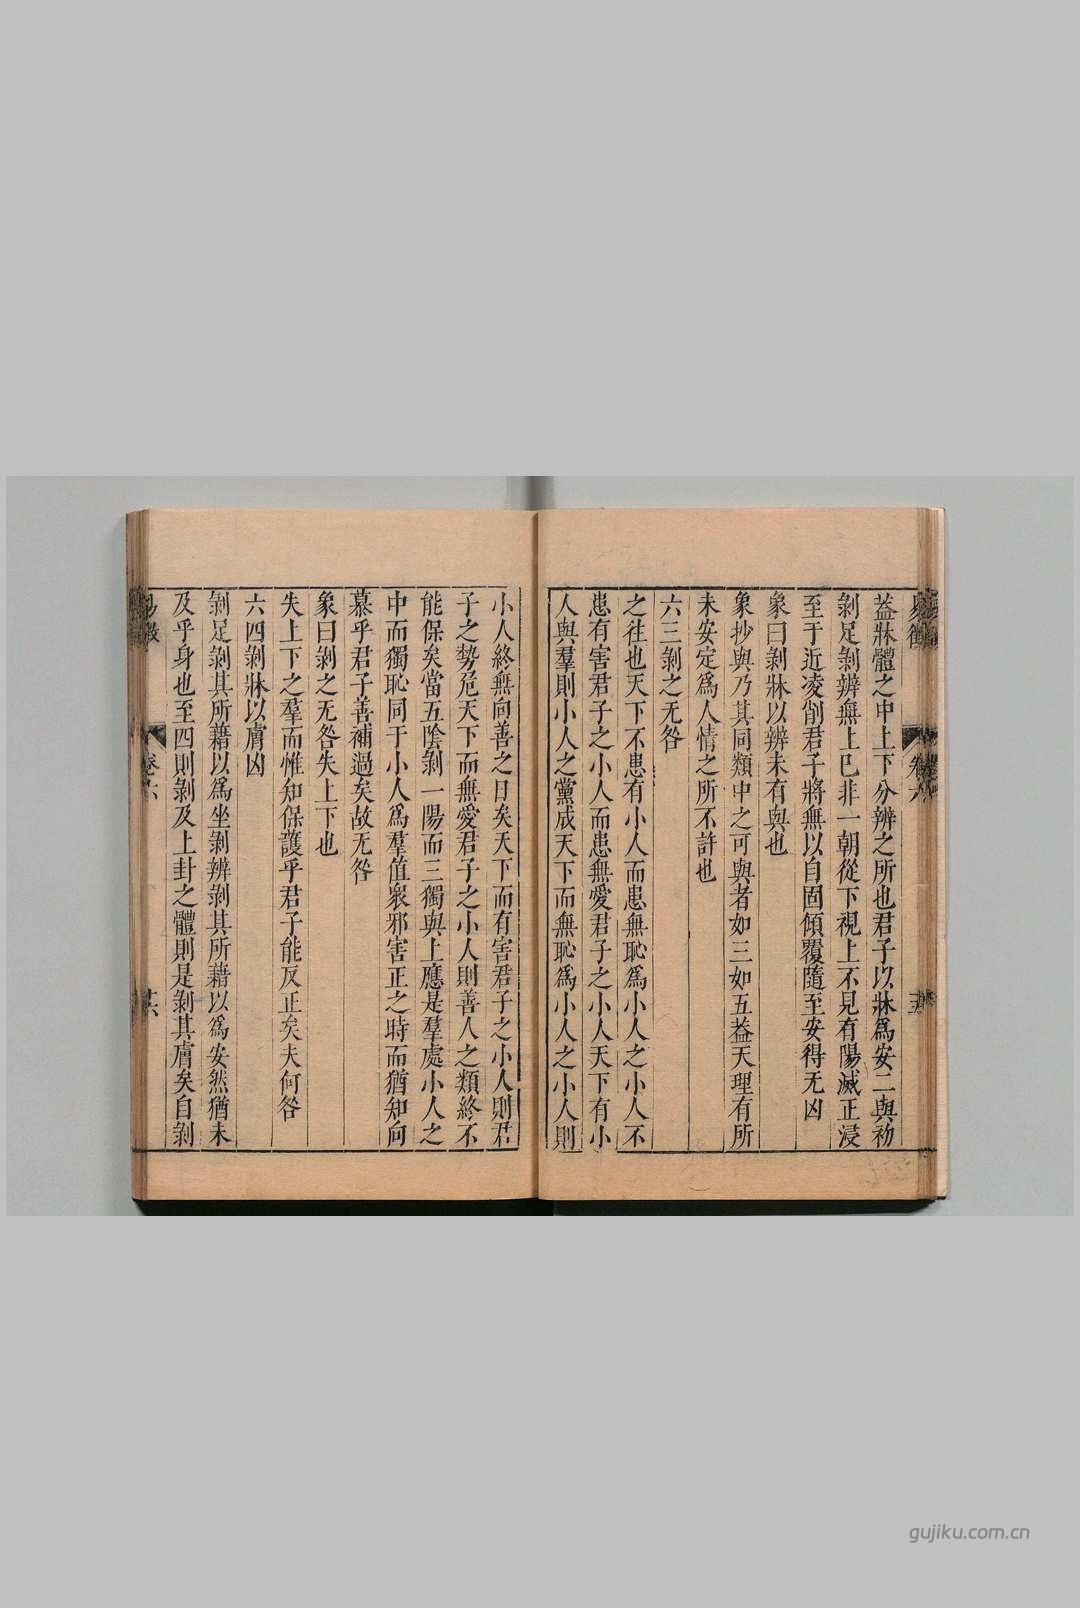 蓋牀體之中上下分辨之所也君子以牀爲安二與初
剝足剝辨無上已非一朝從下視上不見有陽滅正浸
至于近凌削君子將無以自固傾覆隨至安得无凶
象曰剝牀以辨未有與也
象抄與乃其同類中之可與者如三如五益天理有所
未安定爲人情之所不許也
六三剝之无咎
之往也天下不患有小人而患無恥爲小人之小人不
患有害君子之小人而患無愛君子之小人天下有小
人與羣則小人之黨成天下而無恥爲小人之小人則
小人終無向善之日矣天下而有害君子之小人則君
子之勢危天下而無愛君子之小人則善人之類終不
能保矣當五陰剝一陽而三獨與上應是羣處小人之
中而獨恥同于小人爲羣值衆邪害正之時而猶知向
慕乎君子善補過矣故无咎
象曰剝之无咎失上下也
失上下之羣而惟知保護乎君子能反正矣夫何咎
六四剝牀以膚凶
剝足剝其所藉以爲坐剝辨剝其所藉以爲安然猶未
及乎身也至四則剝及上封之體則是剝其膚矣自剝
卷六
廿六
gujiku.com.cn